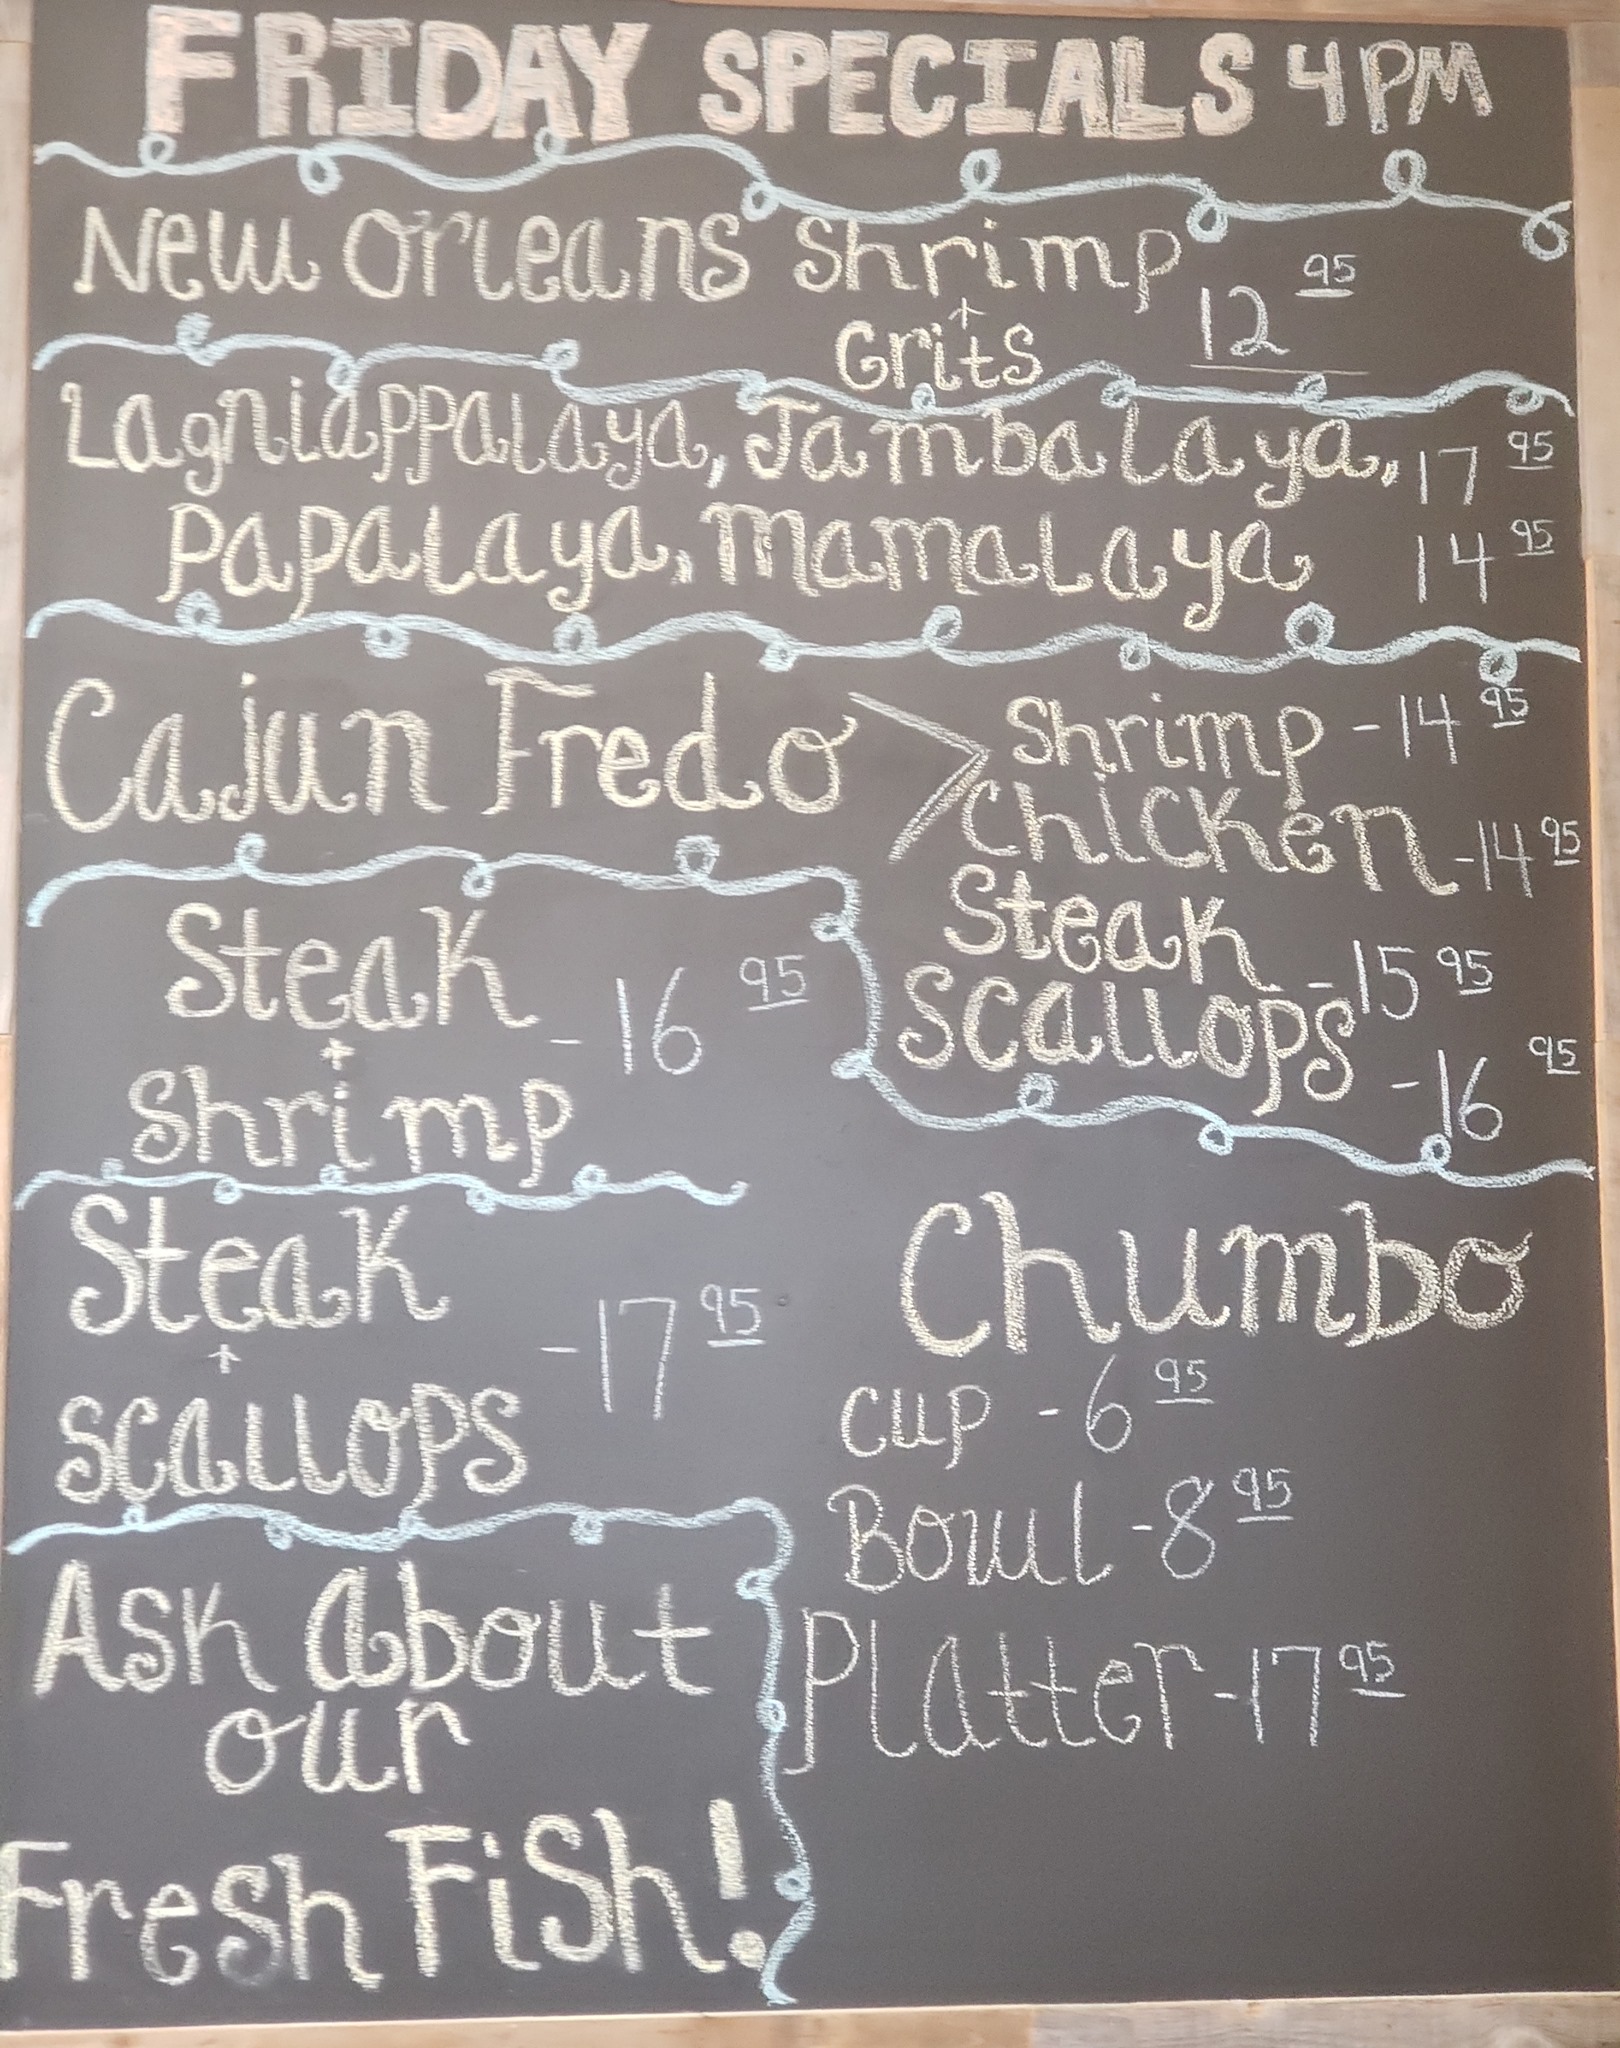 FRIDAY SPECIALS 4PM
New Orleans Shrimp
+
Grits 12 95
Lagniappalaya, Jambalaya, 17 95
Papalaya, Mamalaya 14 95
Cajun Fredo > Shrimp - 14 95
Chicken - 14 95
Steak - 15 95
Scallops - 16 95
Steak
+ - 16 95
Shrimp
Steak
+ - 17 95
Scallops
Chumbo
Cup - 6 95
Bowl - 8 95
Platter - 17 95
Ask About
our
Fresh Fish!